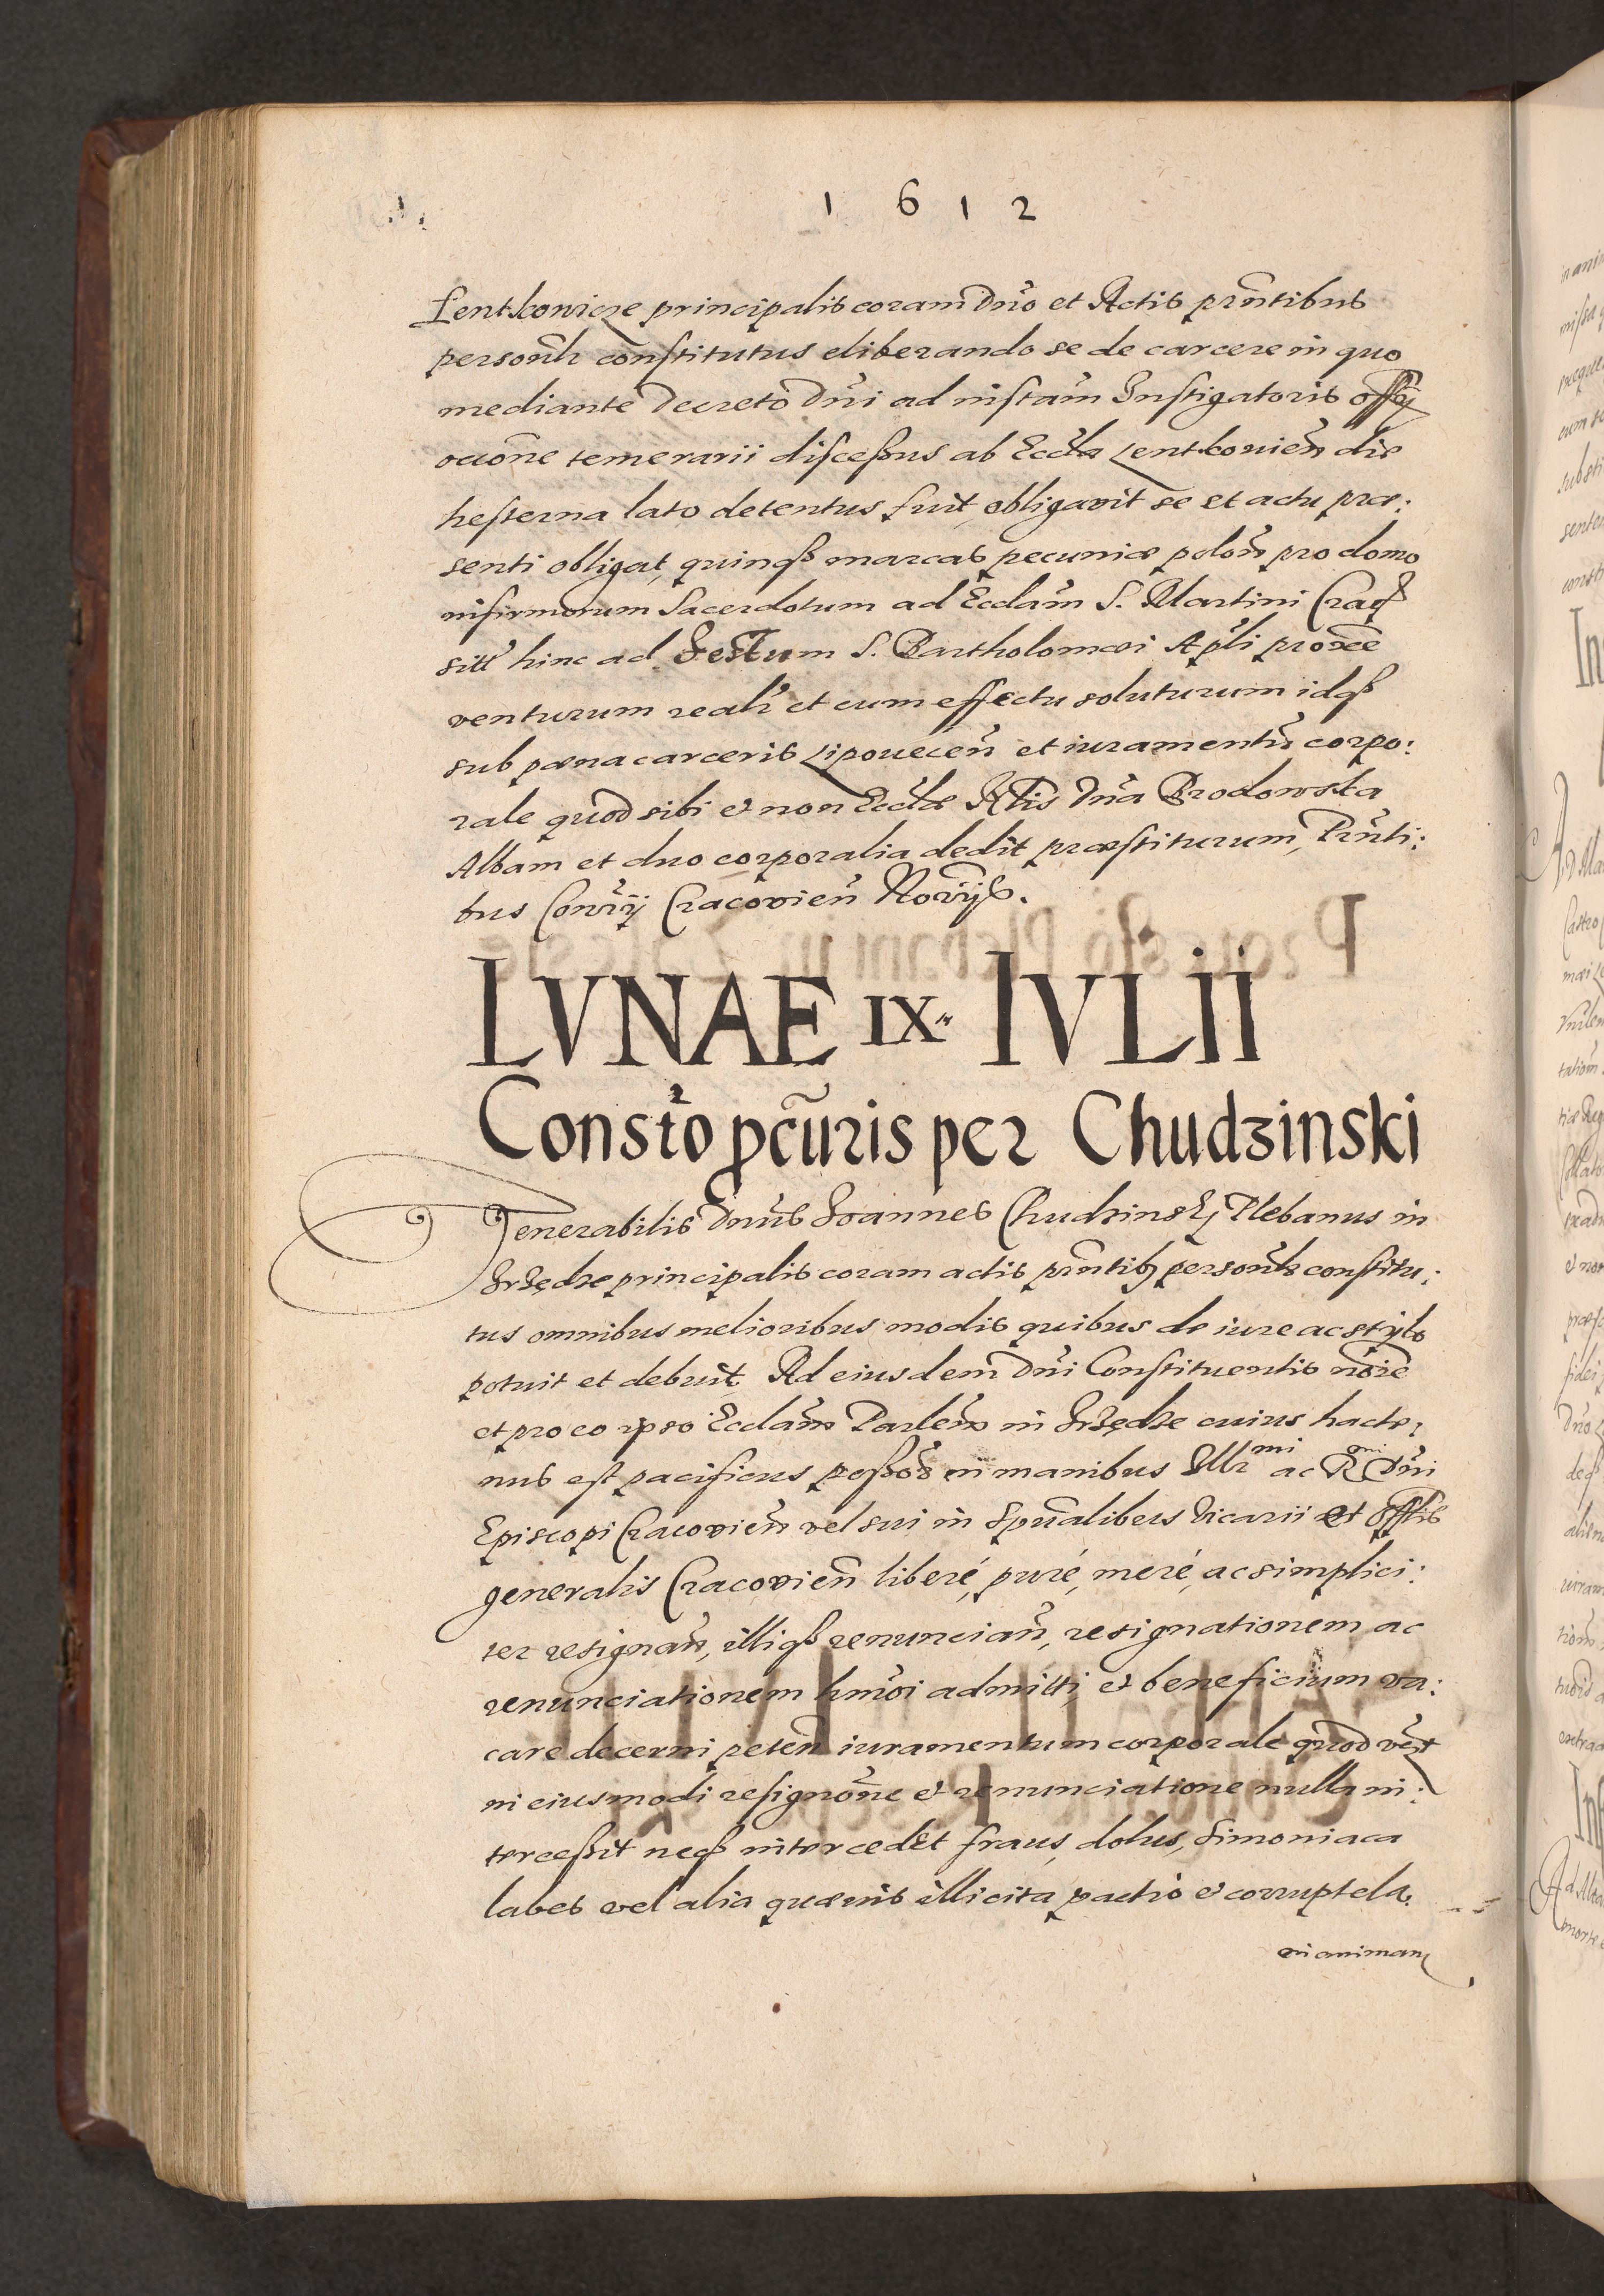 1 6 1 2
Lentkovicze principalis coram Dno et Actis pntibus
personlr constitutus eliberando se de carcere in quo
mediante Decreto Dni ad instam Instigatoris offy
occone temerarii discessus ab Eccla Lentkovien die
hesterna lato detentus fuit, obligavit se et actu præ:
senti obligat, quinqȝ marcas pecuniæ polon pro domo
infirmorum Sacerdotum ad Ecclam S. Martini Crac
sitt hinc ad Festum S. Bartholomæi Apli proxee
venturum realr et cum effectu soluturum idqȝ
sub pæna carceris Lipovecen et iuramentu corpo:
rale quod sibi et non Ecclæ Dna Brodowska
Albam et duo corporalia dedit præstiturum, Pnti:
bus Cracovien Novijs.
LVNAE IX. IVLII
Consto pcuris per Chudzinski
Venerabilis Dnus Joannes Chudzinskj Plebanus in
Grzędze principalis coram actis pntibȝ personlr constitu:
tus omnibus melioribus modis quibus de iure ac stylo
potuit et debuit Ad eiusdem Dni Constituentis noie
et pro eo ipso Ecclam Parlem in Grzędze cuius hacte:
nus est pacificus possor in manibus Illrmi ac R Dni
Episcopi Cracovien vel sui in Spualibus Vicarii et Offlis
generalis Cracovien liberé, puré, meré, ac simplici:
ter resignan, illiqȝ renuncian, resignationem ac
renunciationem hmoi admitti et beneficium va:
care decerni peten iuramentum corporale quod
in eiusmodi resignone et renunciatione nulla in:
tercessit neqȝ intercedet fraus, dolus, Simoniaca
labes vel alia quævis illicita pactio et corruptela.
in animam